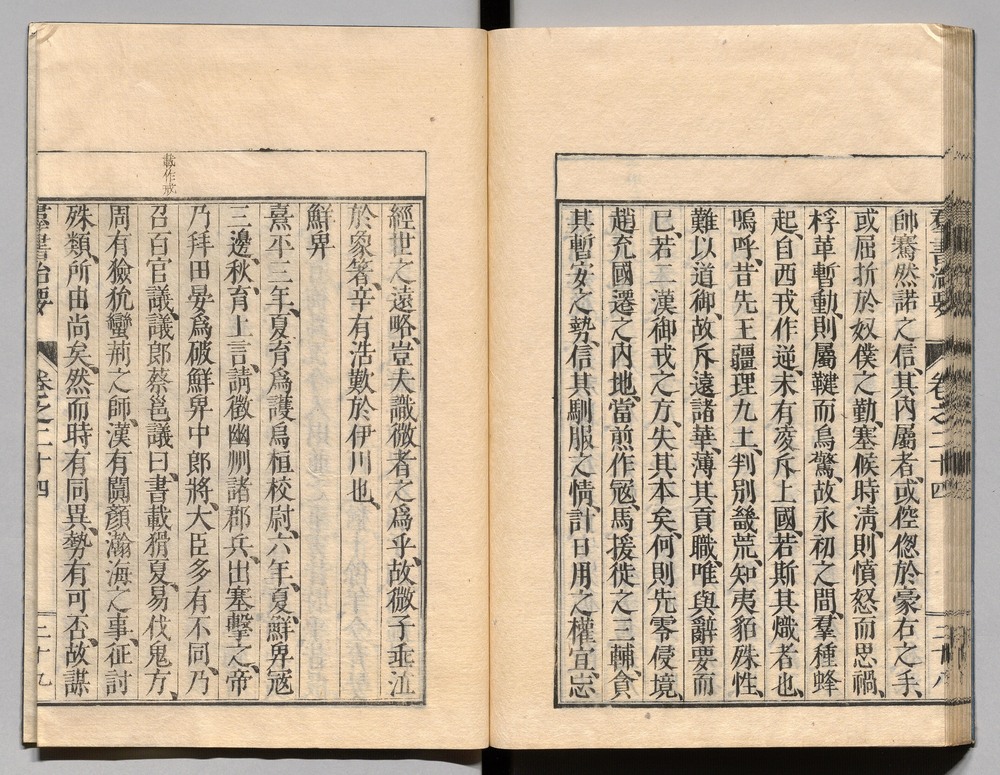 羣書治要 卷之二十四 三十八
帥騫然諾之信、其內屬者、或倥偬於豪右之手、
或屈折於奴僕之勤、塞候時清、則憤怒而思禍、
桴革暫動、則屬鞬而鳥驚、故永初之間、羣種蜂
起、自西戎作逆、未有凌斥上國、若斯其熾者也、
嗚呼、昔先王疆理九土、判別畿荒、知夷貊殊性、
難以道御、故斥遠諸華、薄其貢職、唯與辭要而
已、若二漢御戎之方、失其本矣、何則先零侵境、
趙充國遷之內地、當煎作寇、馬援徙之三輔、貪
其暫安之勢、信其馴服之情、計日用之權宜、忘
經世之遠略、豈夫識微者之爲乎、故微子垂泣
於象箸、辛有浩歎於伊川也、
鮮卑
熹平三年、夏育爲護烏桓校尉、六年、夏、鮮卑寇
三邊、秋、育上言、請徵幽州諸郡兵、出塞擊之、帝
乃拜田晏爲破鮮卑中郎將、大臣多有不同、乃
召百官議、議郎蔡邕議曰、書載猾夏、易伐鬼方、
載作戒
周有獫狁蠻荊之師、漢有闐顏瀚海之事、征討
殊類、所由尚矣、然而時有同異、勢有可否、故謀
羣書治要 卷之二十四 三十九